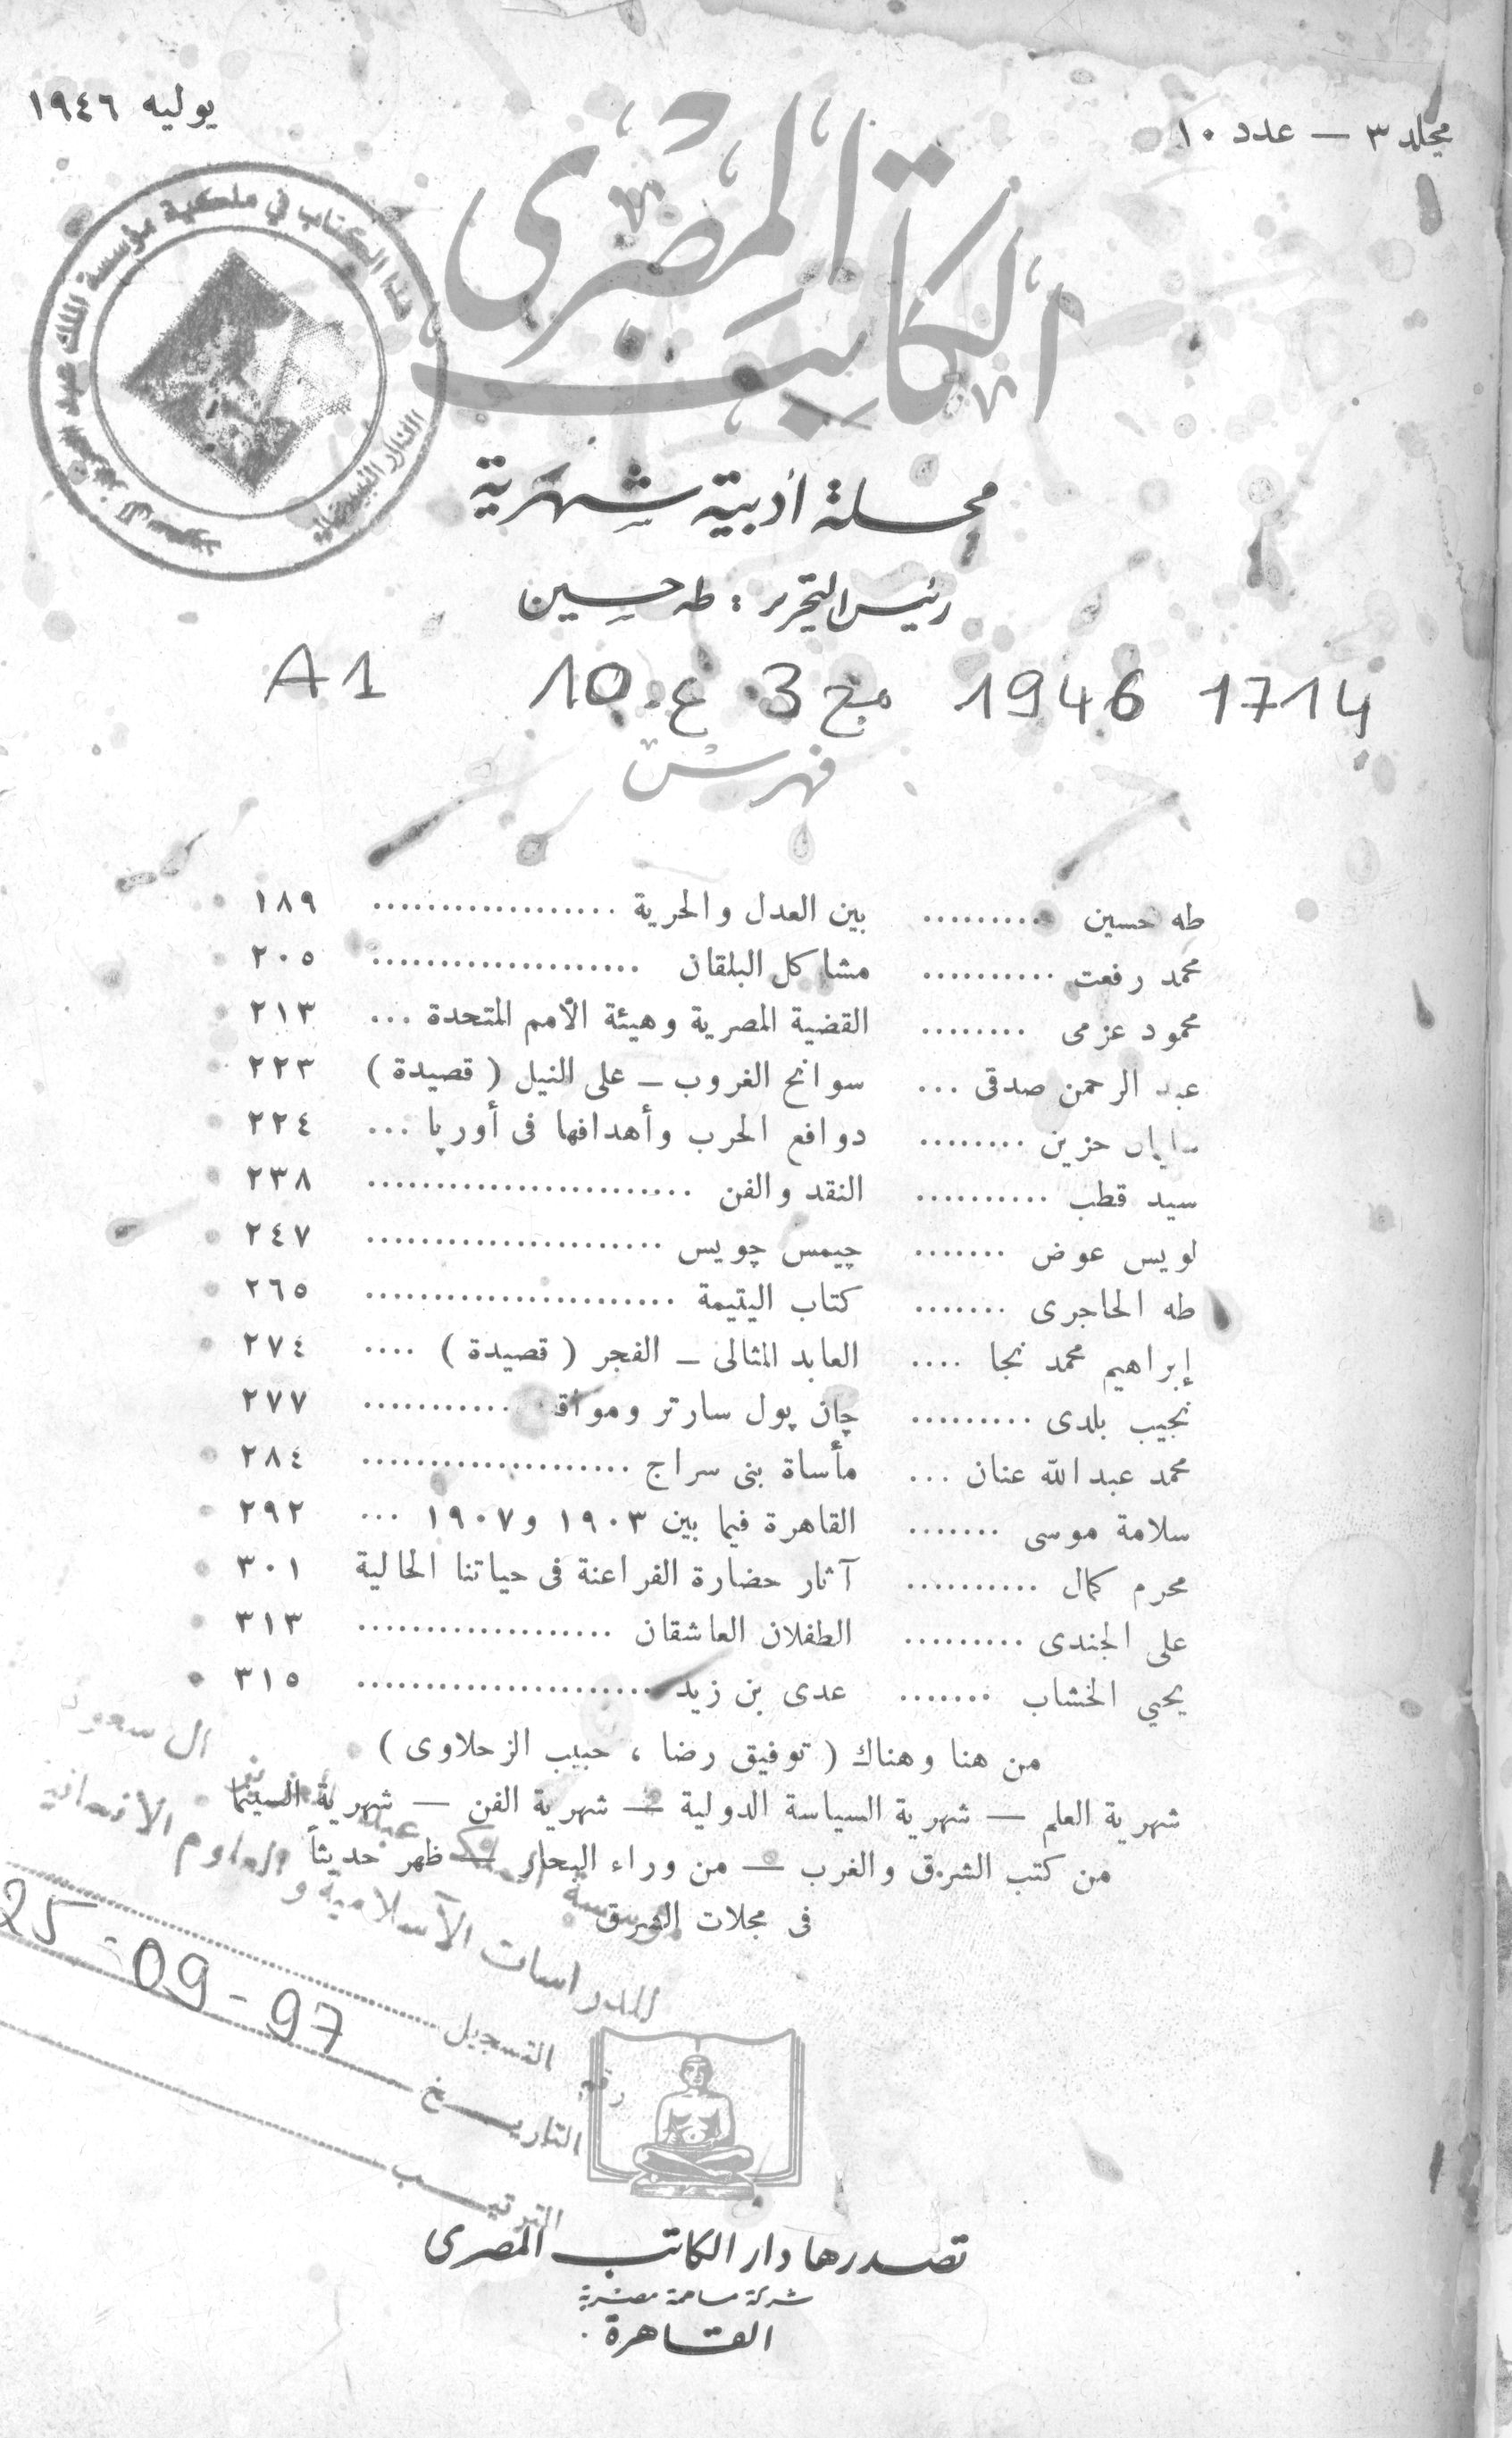 مجلد ٣ — عدد ١٠
يوليه ١٩٤٦
الكاتب المصرى
مجلة أدبية شهرية
رئيس التحرير : طه حسين
1714 1946 مج 3 ع 10 A1
فهرس
طه حسين .......... بين العدل والحرية .................. ١٨٩
محمد رفعت .......... مشاكل البلقان .................... ٢٠٥
محمود عزمى ........ القضية المصرية وهيئة الأمم المتحدة ... ٢١٣
عبد الرحمن صدقى ... سوانح الغروب – على النيل ( قصيدة ) ٢٢٣
حزين ........ دوافع الحرب وأهدافها فى أوربا ... ٢٢٤
سيد قطب .......... النقد والفن ........................ ٢٣٨
لويس عوض ....... چيمس چويس ...................... ٢٤٧
طه الحاجرى ....... كتاب اليتيمة ....................... ٢٦٥
إبراهيم محمد نجا .... العابد المثالى – الفجر ( قصيدة ) .... ٢٧٤
نجيب بلدى ......... چان پول سارتر ........... ٢٧٧
محمد عبد الله عنان ... مأساة بنى سراج .................... ٢٨٤
سلامة موسى ....... القاهرة فيما بين ١٩٠٣ و ١٩٠٧ ... ٢٩٢
محرم كمال .......... آثار حضارة الفراعنة فى حياتنا الحالية ٣٠١
على الجندى ......... الطفلان العاشقان ................... ٣١٣
يحيي الخشاب ....... عدى بن زيد ...................... ٣١٥
من هنا وهناك ( توفيق رضا ، حبيب الزحلاوى )
شهرية العلم — شهرية السياسة الدولية — شهرية الفن — شهرية السينما
من كتب الشرق والغرب — من وراء البحار — ظهر حديثاً
فى مجلات الشرق
تصدرها دار الكاتب المصرى
شركة مساهمة مصرية
القاهرة
هذا الكتاب في ملكية مؤسسة الملك عبد العزيز آل سعود
الدار البيضاء
مؤسسة الملك عبد العزيز آل سعود
للدراسات الإسلامية والعلوم الإنسانية
رقم التسجيل
التاريخ 25-09-97
الترتيب